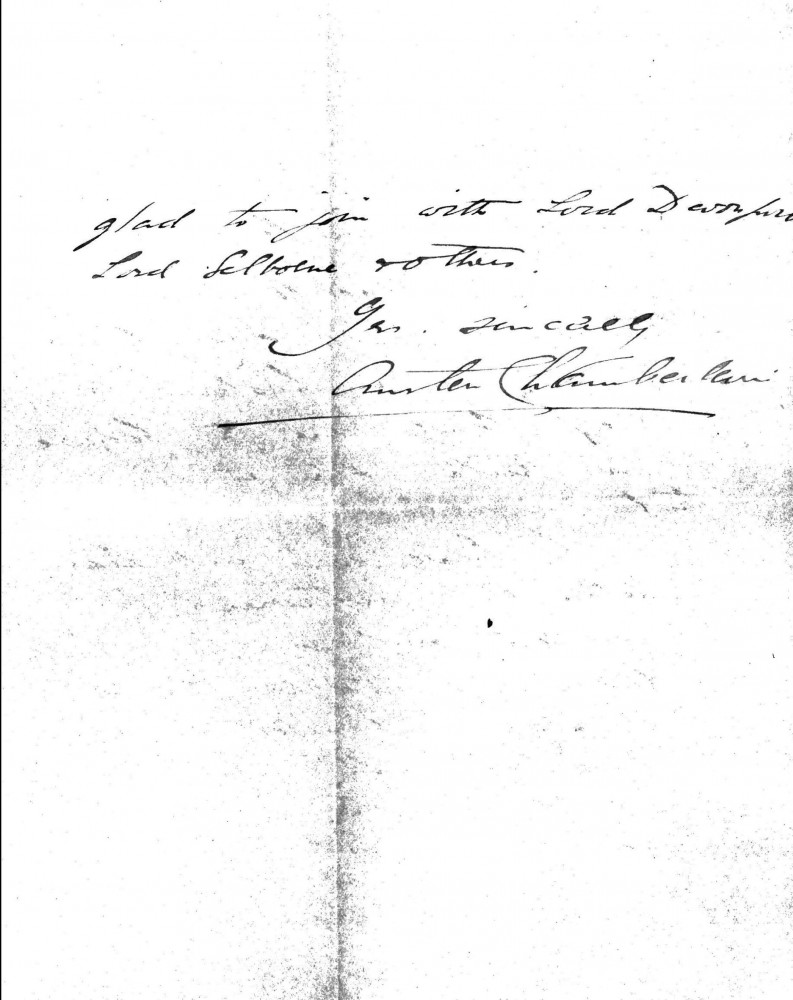 glad to join with Lord Devonpor
Lord Selborne & others.
Yrs. sincerely
Austen Chamberlain